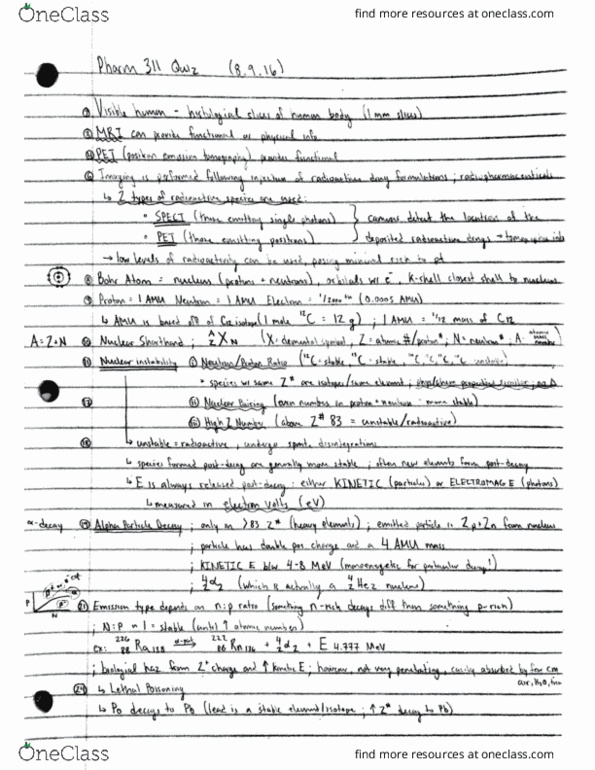 OneClass
find more resources at oneclass.com
Pharm 311 Quiz (8.9.16)
Visible human - histological slices of human body (1 mm slices)
MRI can provide functional or physical info
PET (positron emission tomography) provides functional
Imaging is performed following injection of radioactive drug formulations ; radiopharmaceuticals
↳ 2 types of radioactive species are used:
• SPECT (those emitting single photons) } cameras detect the location of the
• PET (those emitting positrons) } deposited radioactive drugs → tomographic info
→ low levels of radioactivity can be used, posing minimal risk to pt
Bohr Atom = nucleus (protons + neutrons), orbitals w/ e⁻, K-shell closest shell to nucleus
Proton = 1 AMU Neutron = 1 AMU Electron = 1/2000th (0.0005 AMU)
↳ AMU is based off of C12 isotope (1 mole ¹²C = 12 g) ; 1 AMU = 1/12 mass of C12
A = Z + N Nuclear Shorthand: A Z X N (X = elemental symbol, Z = atomic #/proton#, N = neutron#, A = atomic mass number)
Nuclear instability Neutron/Proton Ratio (¹²C - stable
• species w/ same Z# are isotopes/same element ;
Nuclear Pairing (even numbers in proton + neutron - more stable)
High Z Number (above Z# 83 = unstable/radioactive)
↳ unstable = radioactive, undergo spont. disintegrations
↳ species formed post-decay are generally more stable ; often new elements form post-decay
↳ E is always released post-decay : either KINETIC (particles) or ELECTROMAG E (photons)
↳ measured in electron volts (eV)
α-decay Alpha Particle Decay ; only in >83 Z# (heavy elements) ; emitted particle is 2p+2n from nucleus
; particle has double pos charge and a 4 AMU mass
; KINETIC E b/w 4-8 MeV (monoenergetic for particular decay!)
; 4 2 α 2 (which is actually a 4 2 He 2 nucleus)
P N
Emission type depends on n:p ratio (something n-rich decays diff than something p-rich)
; N:P ~ 1 = stable (until ↑ atomic number)
ex: 226 88 Ra 138 → 222 86 Rn 136 + 4 2 α 2 + E 4.777 MeV
; biological haz from 2⁺ charge and ↑ kinetic E ; however, not very penetrating, easily absorbed by few cm
air, H₂O,
↳ Lethal Poisoning
↳ Po decays to Pb (lead is a stable element/isotope ; ↑ Z# decay to Pb)
OneClass
find more resources at oneclass.com